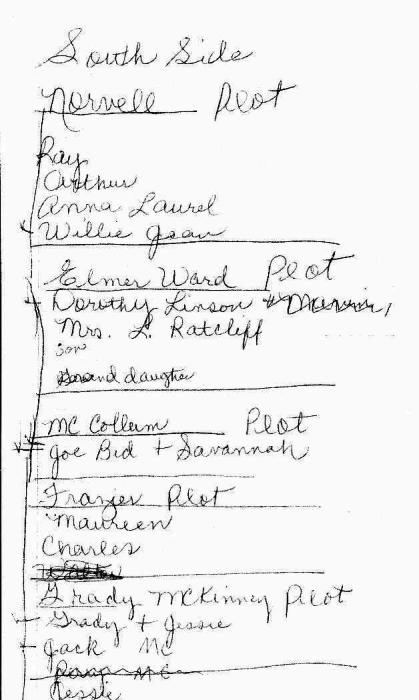 South Side
Norvell Plot
Ray
Arthur
Anna Laurel
Willie Jean
Elmer Ward Plot
Dorothy Linson +
Mrs. L. Ratcliff
son
daughter
McCollum Plot
Joe Bid + Savannah
Frazier Plot
Maureen
Charles
Grady McKinney Plot
Grady + Jessie
Jack Mc
Jessie